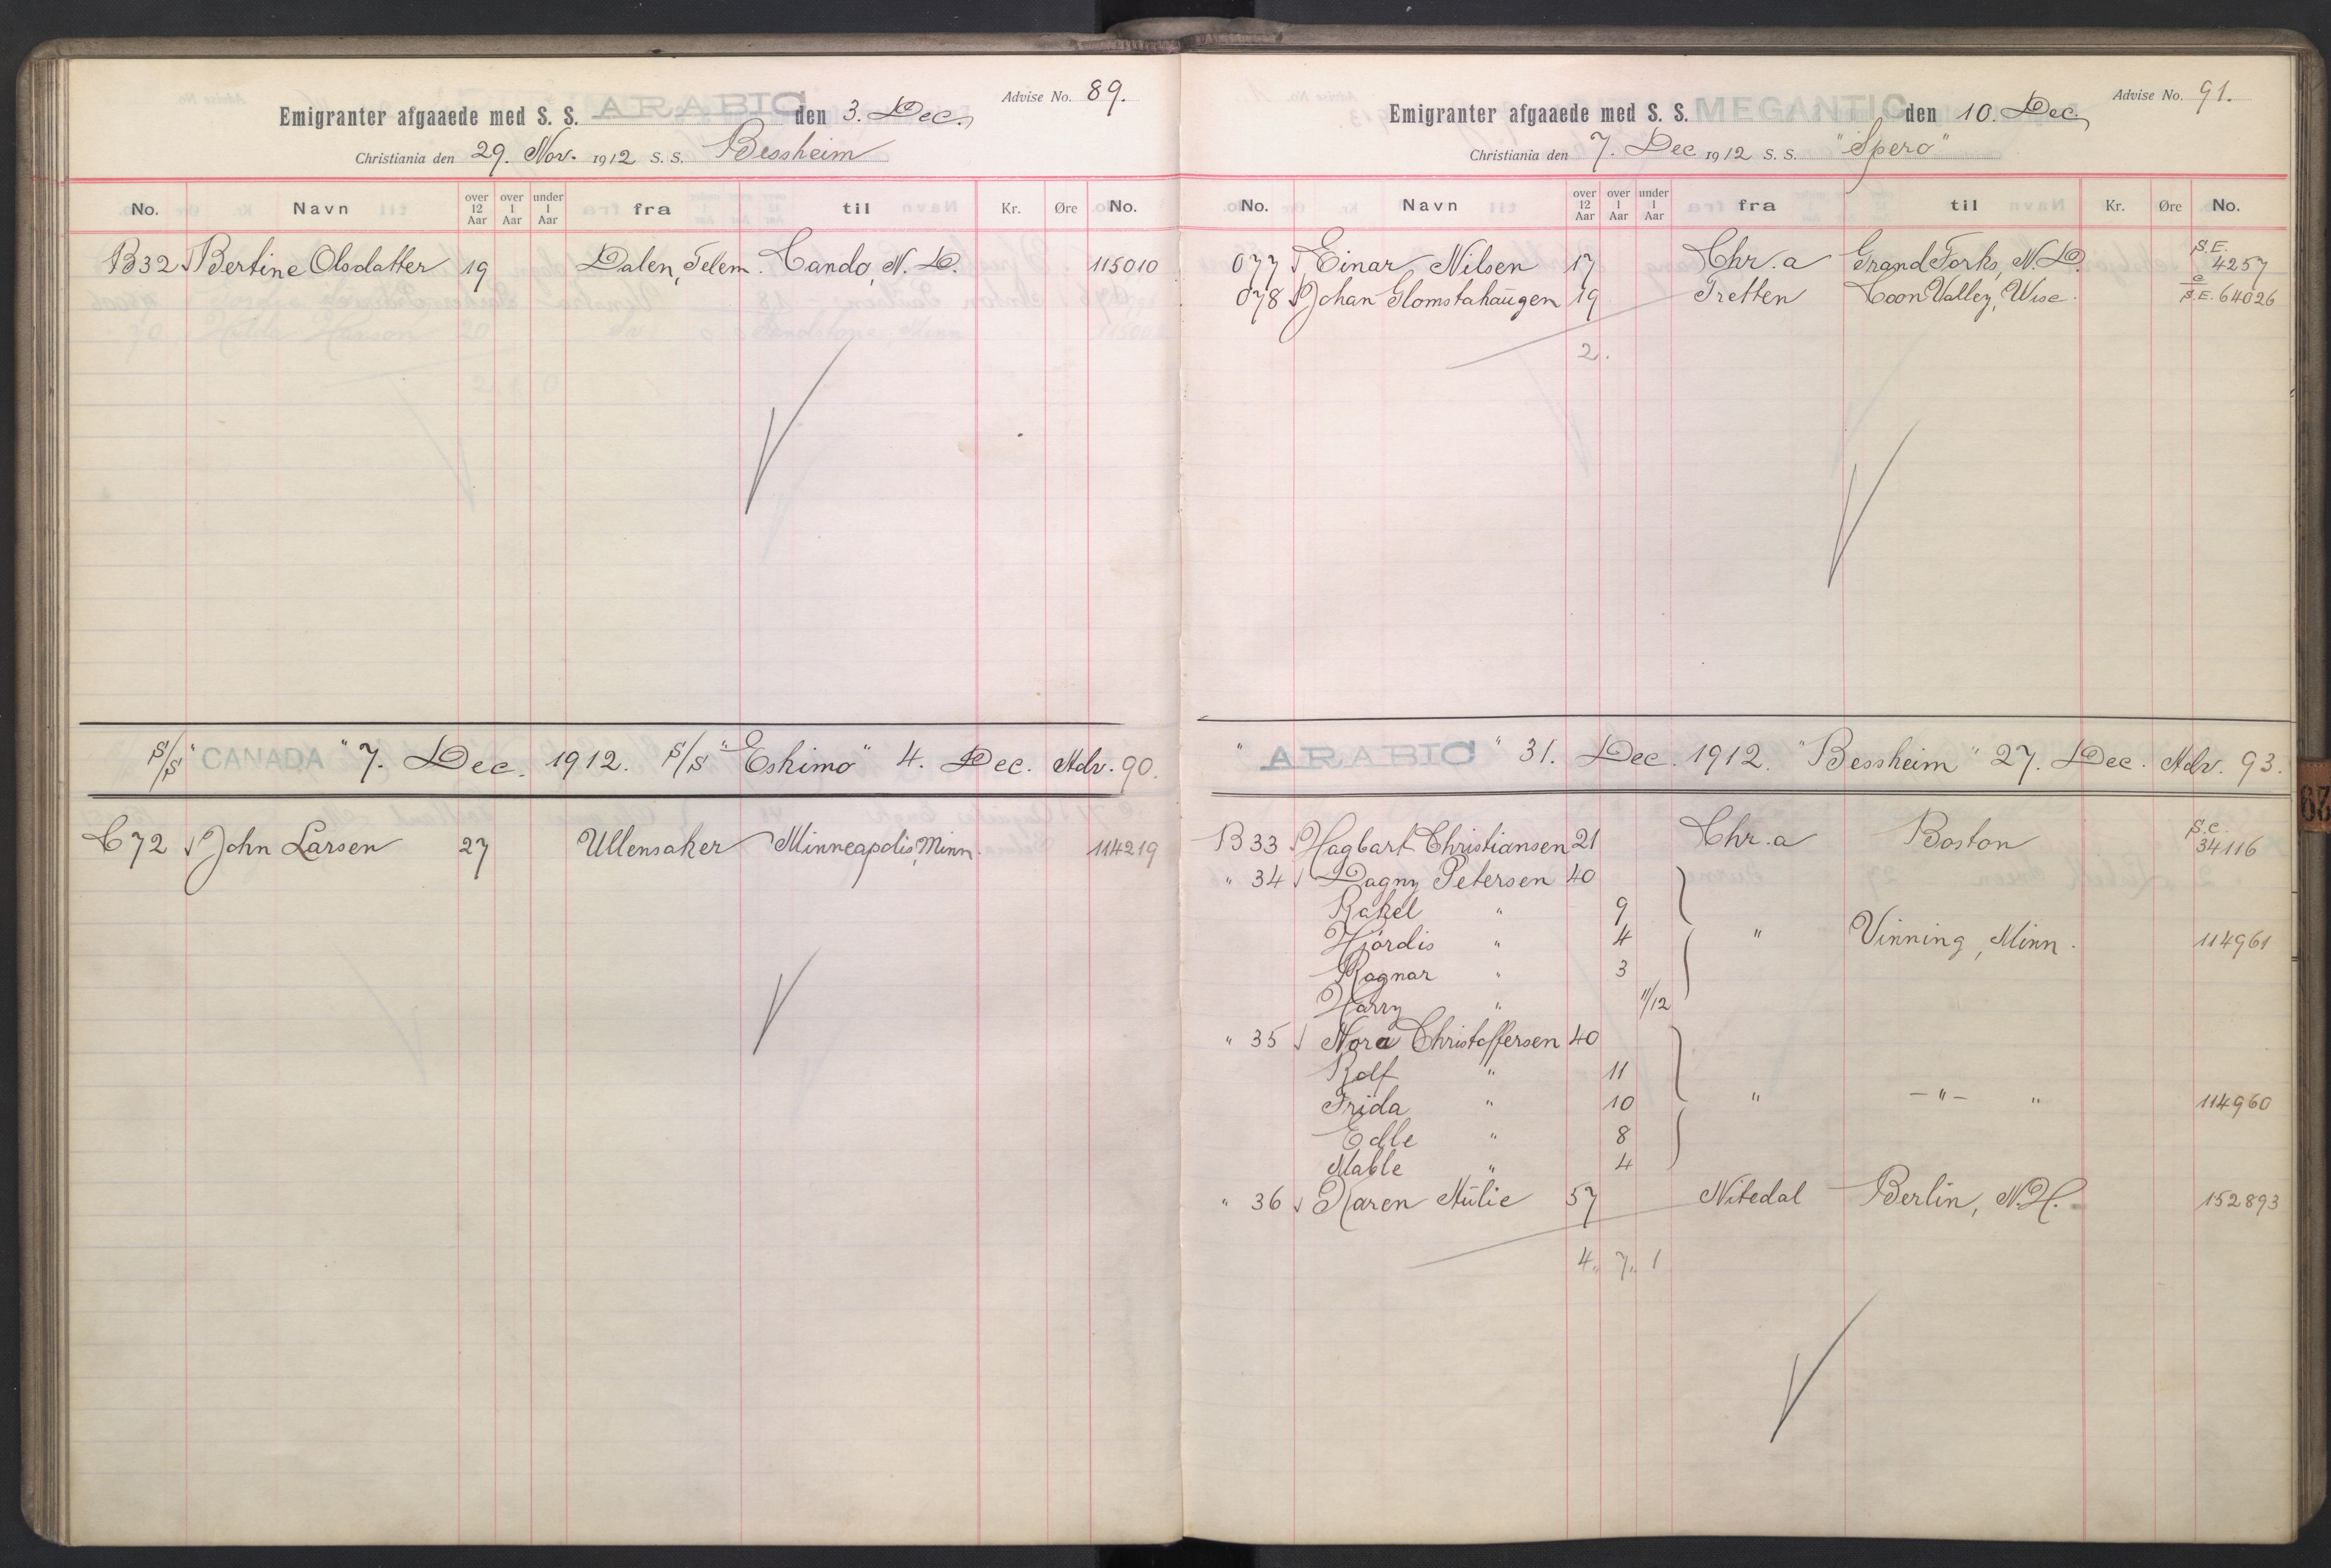 Advise No. 89.
Emigranter afgaaede med S. S. ARABIC den 3. Dec.
Christiania den 29. Nov. 1912 S. S. Bessheim
No. Navn over 12 Aar over 1 Aar under 1 Aar fra til Kr. Øre No.
B32 Bertine Olsdatter 19 Dalen, Telem. Cando, N. D. 115010
S/S "CANADA" 7. Dec. 1912. S/S "Eskimo" 4. Dec. Adv. 90.
C72 John Larsen 27 Ullensaker Minneapolis, Minn. 114219
Advise No. 91.
Emigranter afgaaede med S. S. MEGANTIC den 10. Dec.
Christiania den 7. Dec 1912 S. S. "Spero"
No. Navn over 12 Aar over 1 Aar under 1 Aar fra til Kr. Øre No.
077 Einar Nilsen 17 Chr.a Grand Forks, N. D. S.E. 4257
078 Johan Glomstahaugen 19 Tretten Coon Valley, Wisc. S.E. 64026
2.
" ARABIC " 31. Dec. 1912. "Bessheim" 27. Dec. Adv. 93.
B33 Hagbart Christiansen 21 Chr.a Boston S.C. 34116
" 34 Dagny Petersen 40
Rakel " 9
Hjördis " 4 " Vinning, Minn. 114961
Ragnar " 3
Harry " 11/12
" 35 Nora Christoffersen 40
Rolf " 11
Frida " 10 " -"- " 114960
Edle " 8
Mable " 4
" 36 Karen Mülie 57 Nitedal Berlin, N.H. 152893
4 " 7 " 1